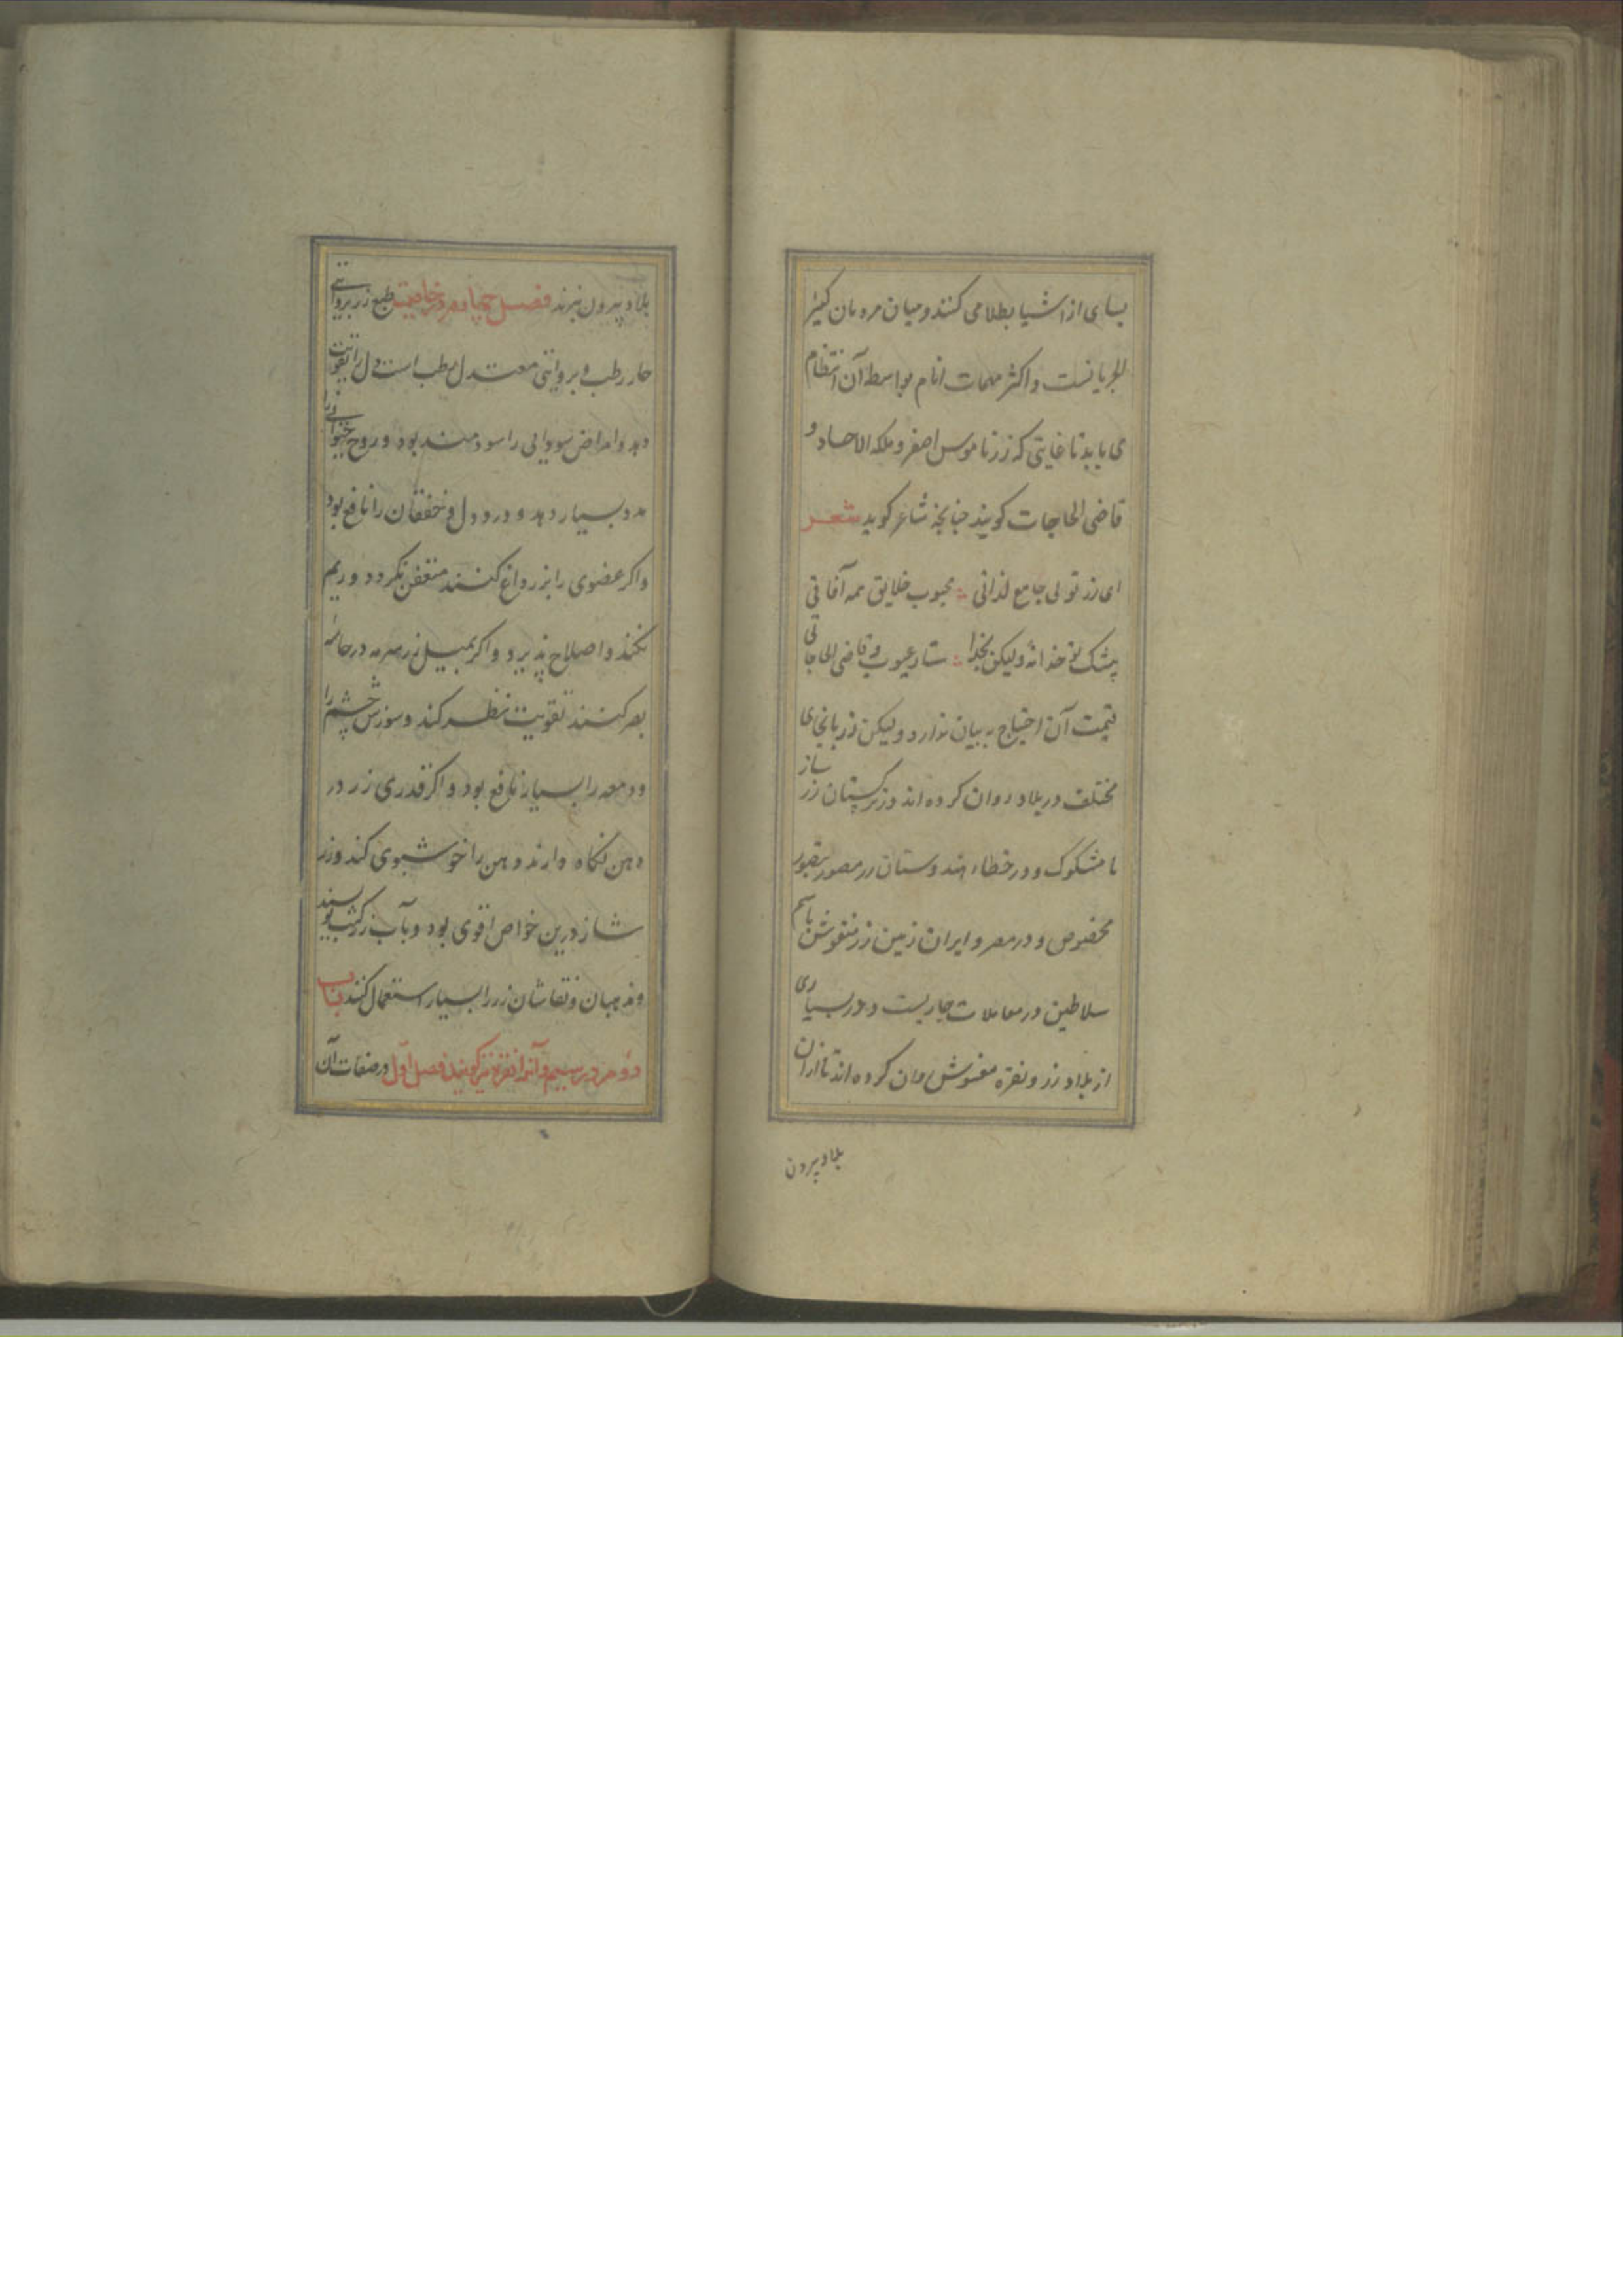 بسیاری از اشیا بطلا می کنند و میان مردمان کثیر
الجریانست و اکثر مهمات انام بواسطه آن انتظام
می یابد تا غایتی که زر ناموس اصغر و ملکه الاحاد و
قاضی الحاجات کویند چنانچه شاعر کوید شعر
ای زر تویی جامع لذاتی محبوب خلایق همه آفاقی
بیشک تو خدا نۀ ولیکن بخدا ستار عیوب و قاضی الحاجاتی
قیمت آن احتیاج به بیان ندارد ولیکن زر بانحای
مختلف در بلاد روان کرده اند در ترکستان زر ساز
نامشکوک و در خطاء هندوستان زر مصور بتصویر
مخصوص و در مصر و ایران زمین زر منقوش باسم
سلاطین در معاملات جاریست و در بسیاری
از بلاد زر و نقره مغشوش روان کرده اند تا از ان
بلاد بیرون
بلاد بیرون نبرند فصل چهارم در خاصیت طبع زر بروایتی
حار رطب و بروایتی معتدل رطب است و دل را تقویت
دهد و امراض سودایی را سودمند بود و روح حیوانی را
مدد بسیار دهد و درد دل و خفقان را نافع بود
و اکر عضوی را بزر داغ کنند متعفن نکردد و ریم
نکند و اصلاح پذیرد و اکر بمیل زر سرمه در حاسۀ
بصر کنند تقویت نظر کند و سوزش چشم را
و دمعه را بسیار نافع بود و اکر قدری زر در
دهن نکاه دارند دهن را خوشبوی کند و زر
شاز درین خواص اقوی بود و بآب زر کتب نویسند
و مذهبان و نقاشان زر را بسیار استعمال کنند باب
دوم در سیم و آنرا نقره نیز کویند فصل اول در صفات آن